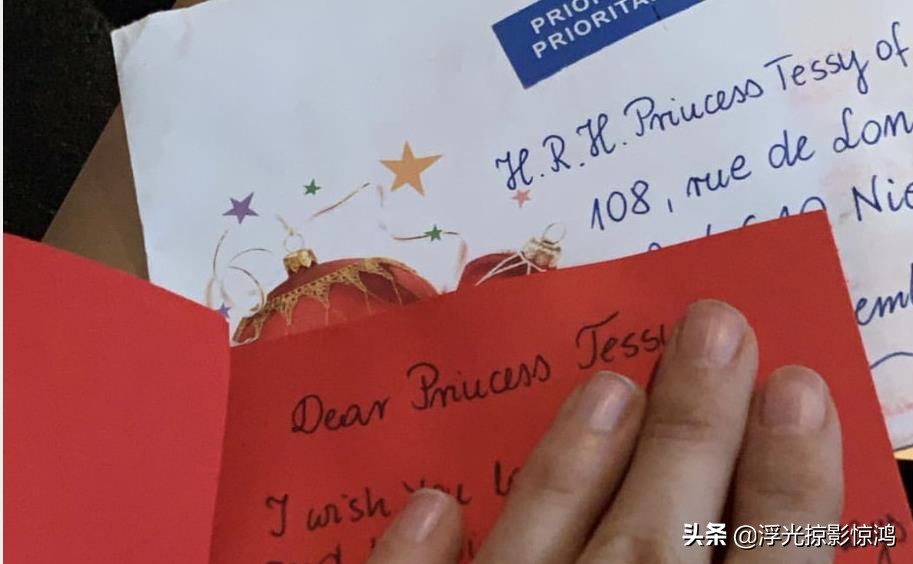 PRIORITA
H.R.H. Princess Tessy of
108, rue de Lon
Nie
emb
Dear Princess Tessy
I wish you
头条 @浮光掠影惊鸿